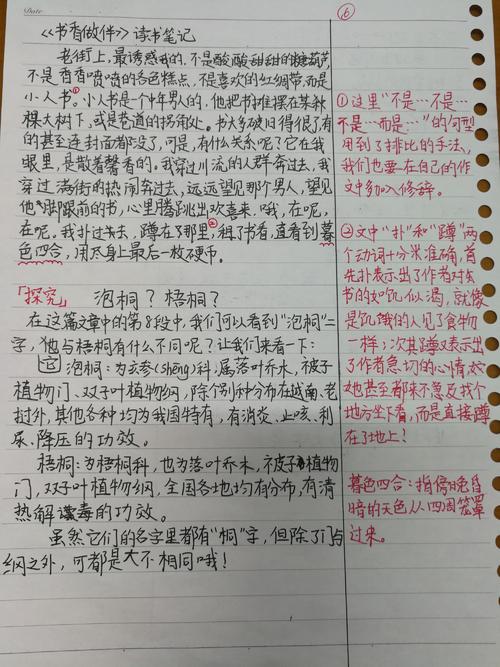 Date
《书香做伴》读书笔记
老街上，最诱惑我的，不是酸酸甜甜的糖葫芦，
不是香香喷喷的各色糕点，不是喜欢的红绸带，而是
小人书。①小人书是个中年男人的，他把书摊摆在某种
棵大树下，或是巷道的拐角处。书大多破旧得很了，有
的甚至连封面都没了，可是，有什么关系呢？它在我
眼里，是散着馨香的。我穿过川流的人群奔过去，我
穿过满街的热闹奔过去，远远望见那个男人，望见
他脚跟前的书，心里腾跳出欢喜来，哦，在呢，
在呢。我扑过去，蹲在了那里，②租了书看，直看到暮
色四合，用尽身上最后一枚硬币。
「探究」 泡桐？梧桐？
在这篇文章中的第8段中，我们可以看到“泡桐”二
字，他与梧桐有什么不同呢？让我们来看一下：
泡桐：为玄参(shēng)科，属落叶乔木，被子
植物门、双子叶植物纲，除个别种分布在越南、老
挝外，其他各种均为我国特有，有消炎、止咳、利
尿、降压的功效。
梧桐：为梧桐科，也为落叶乔木，被子植物
门，双子叶植物纲，全国各地均有分布，有清
热解毒的功效。
虽然它们的名字里都有“桐”字，但除了门与
纲之外，可都是大不相同哦！
⑥
①这里“不是…不是…
不是…而是…”的句型
用到了排比的手法，
我们也要在自己的作
文中多加入修辞。
②文中“扑”和“蹲”两
个动词十分准确，首
先扑表示出了作者对去
书的如饥似渴，就像
是饥饿的人见了食物
一样；次其蹲又表示出
了作者急切的心情，她
她甚至都来不急反找个
地方坐下看，而是直接蹲
在了地上！
暮色四合：指傍晚昏
暗的天色从四周笼罩
过来。